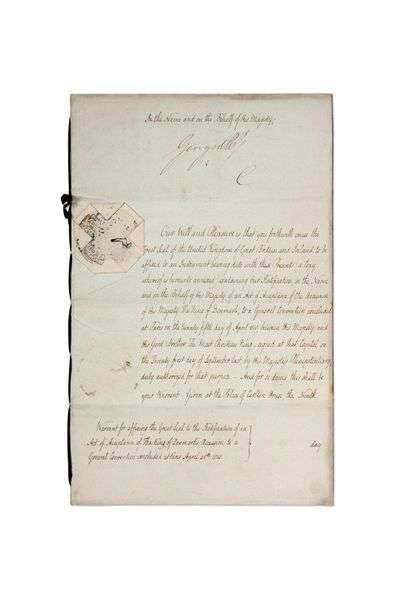 In the Name and on the Behalf of His Majesty,
George P R
Our Will and Pleasure is that you forthwith cause the
Great Seal of the United Kingdom of Great Britain and Ireland to be
affixed to an Instrument bearing date with these Presents a Copy
whereof is hereunto annexed containing Our Ratification in the Name
and on the Behalf of His Majesty of an Act of Acceptance of The Accession
of His Majesty The King of Denmark, to a General Convention concluded
at Paris on the Twenty fifth day of April 1818 between His Majesty and
His Good Brother The Most Christian King, signed at that Capital on
the Twenty first day of September last by His Majesty's Plenipotentiary
duly authorized for that purpose. And for so doing this shall be
your Warrant. Given at the Palace of Carlton House the Ninth
Warrant for affixing the Great Seal to the Ratification of an
Act of Acceptance of The King of Denmark's Accession to a
General Convention concluded at Paris April 25th 1818.
day